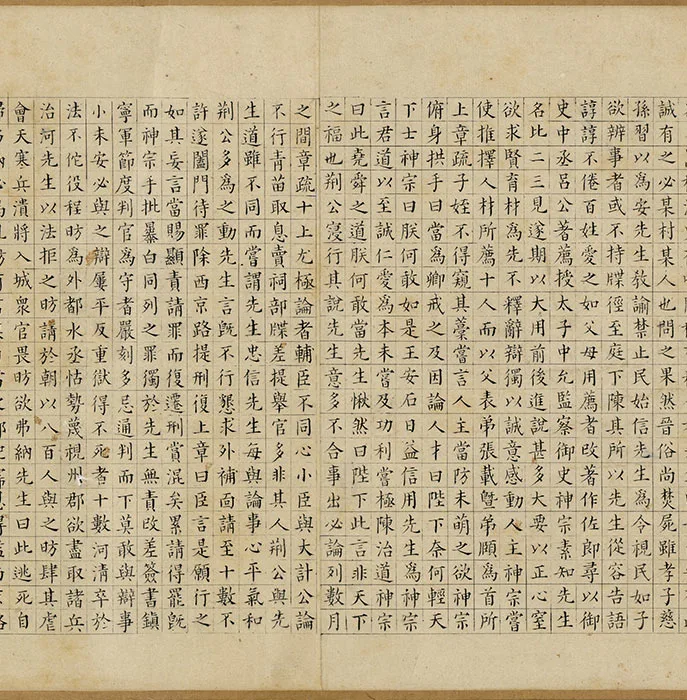 誠有之必某村某人也問之果然晉俗尚焚屍雖孝子慈
孫習以為安先生敎諭禁止民始信先生為令視民如子
欲辨事者或不持牒徑至庭下陳其所以先生從容告語
諄諄不倦百姓愛之如父母用薦者改著作佐郎尋以御
史中丞呂公著薦授太子中允監察御史神宗素知先生
名比二三見遂期以大用前後進說甚多大要以正心窒
欲求賢育材為先不釋辭辯獨以誠意感動人主神宗嘗
使推擇人材所薦十人而以父表弟張載暨弟頤為首所
上章疏子姪不得窺其藁嘗言人主當防未萌之欲神宗
俯身拱手曰當為卿戒之及因論人才曰陛下奈何輕天
下士神宗曰朕何敢如是王安石日益信用先生為神宗
言君道以至誠仁愛為本未嘗及功利嘗極陳治道神宗
曰此堯舜之道朕何敢當先生愀然曰陛下此言非天下
之福也荆公寖行其說先生意多不合事出必論列數月
之間章疏十上尤極論者輔臣不同心小臣與大計公論
不行青苗取息賣祠部牒差提舉官多非其人荆公與先
生道雖不同而嘗謂先生忠信先生每與論事心平氣和
荆公多為之動先生言旣不行懇求外補面請至十數不
許遂闔門待罪除西京路提刑復上章曰臣言是願行之
如其妄言當賜顯責請罪而復遷刑賞混矣累請得罷旣
而神宗手批暴白同列之罪獨於先生無責改差簽書鎮
寧軍節度判官為守者嚴刻多忌通判而下莫敢與辯事
小未安必與之辯屢平反重獄得不死者十數河清卒於
法不佗役程昉為外都水丞怙勢蔑視州郡欲盡取諸兵
治河先生以法拒之昉請於朝以八百人與之昉肆其虐
會天寒兵潰將入城衆官畏昉欲弗納先生曰此逃死自